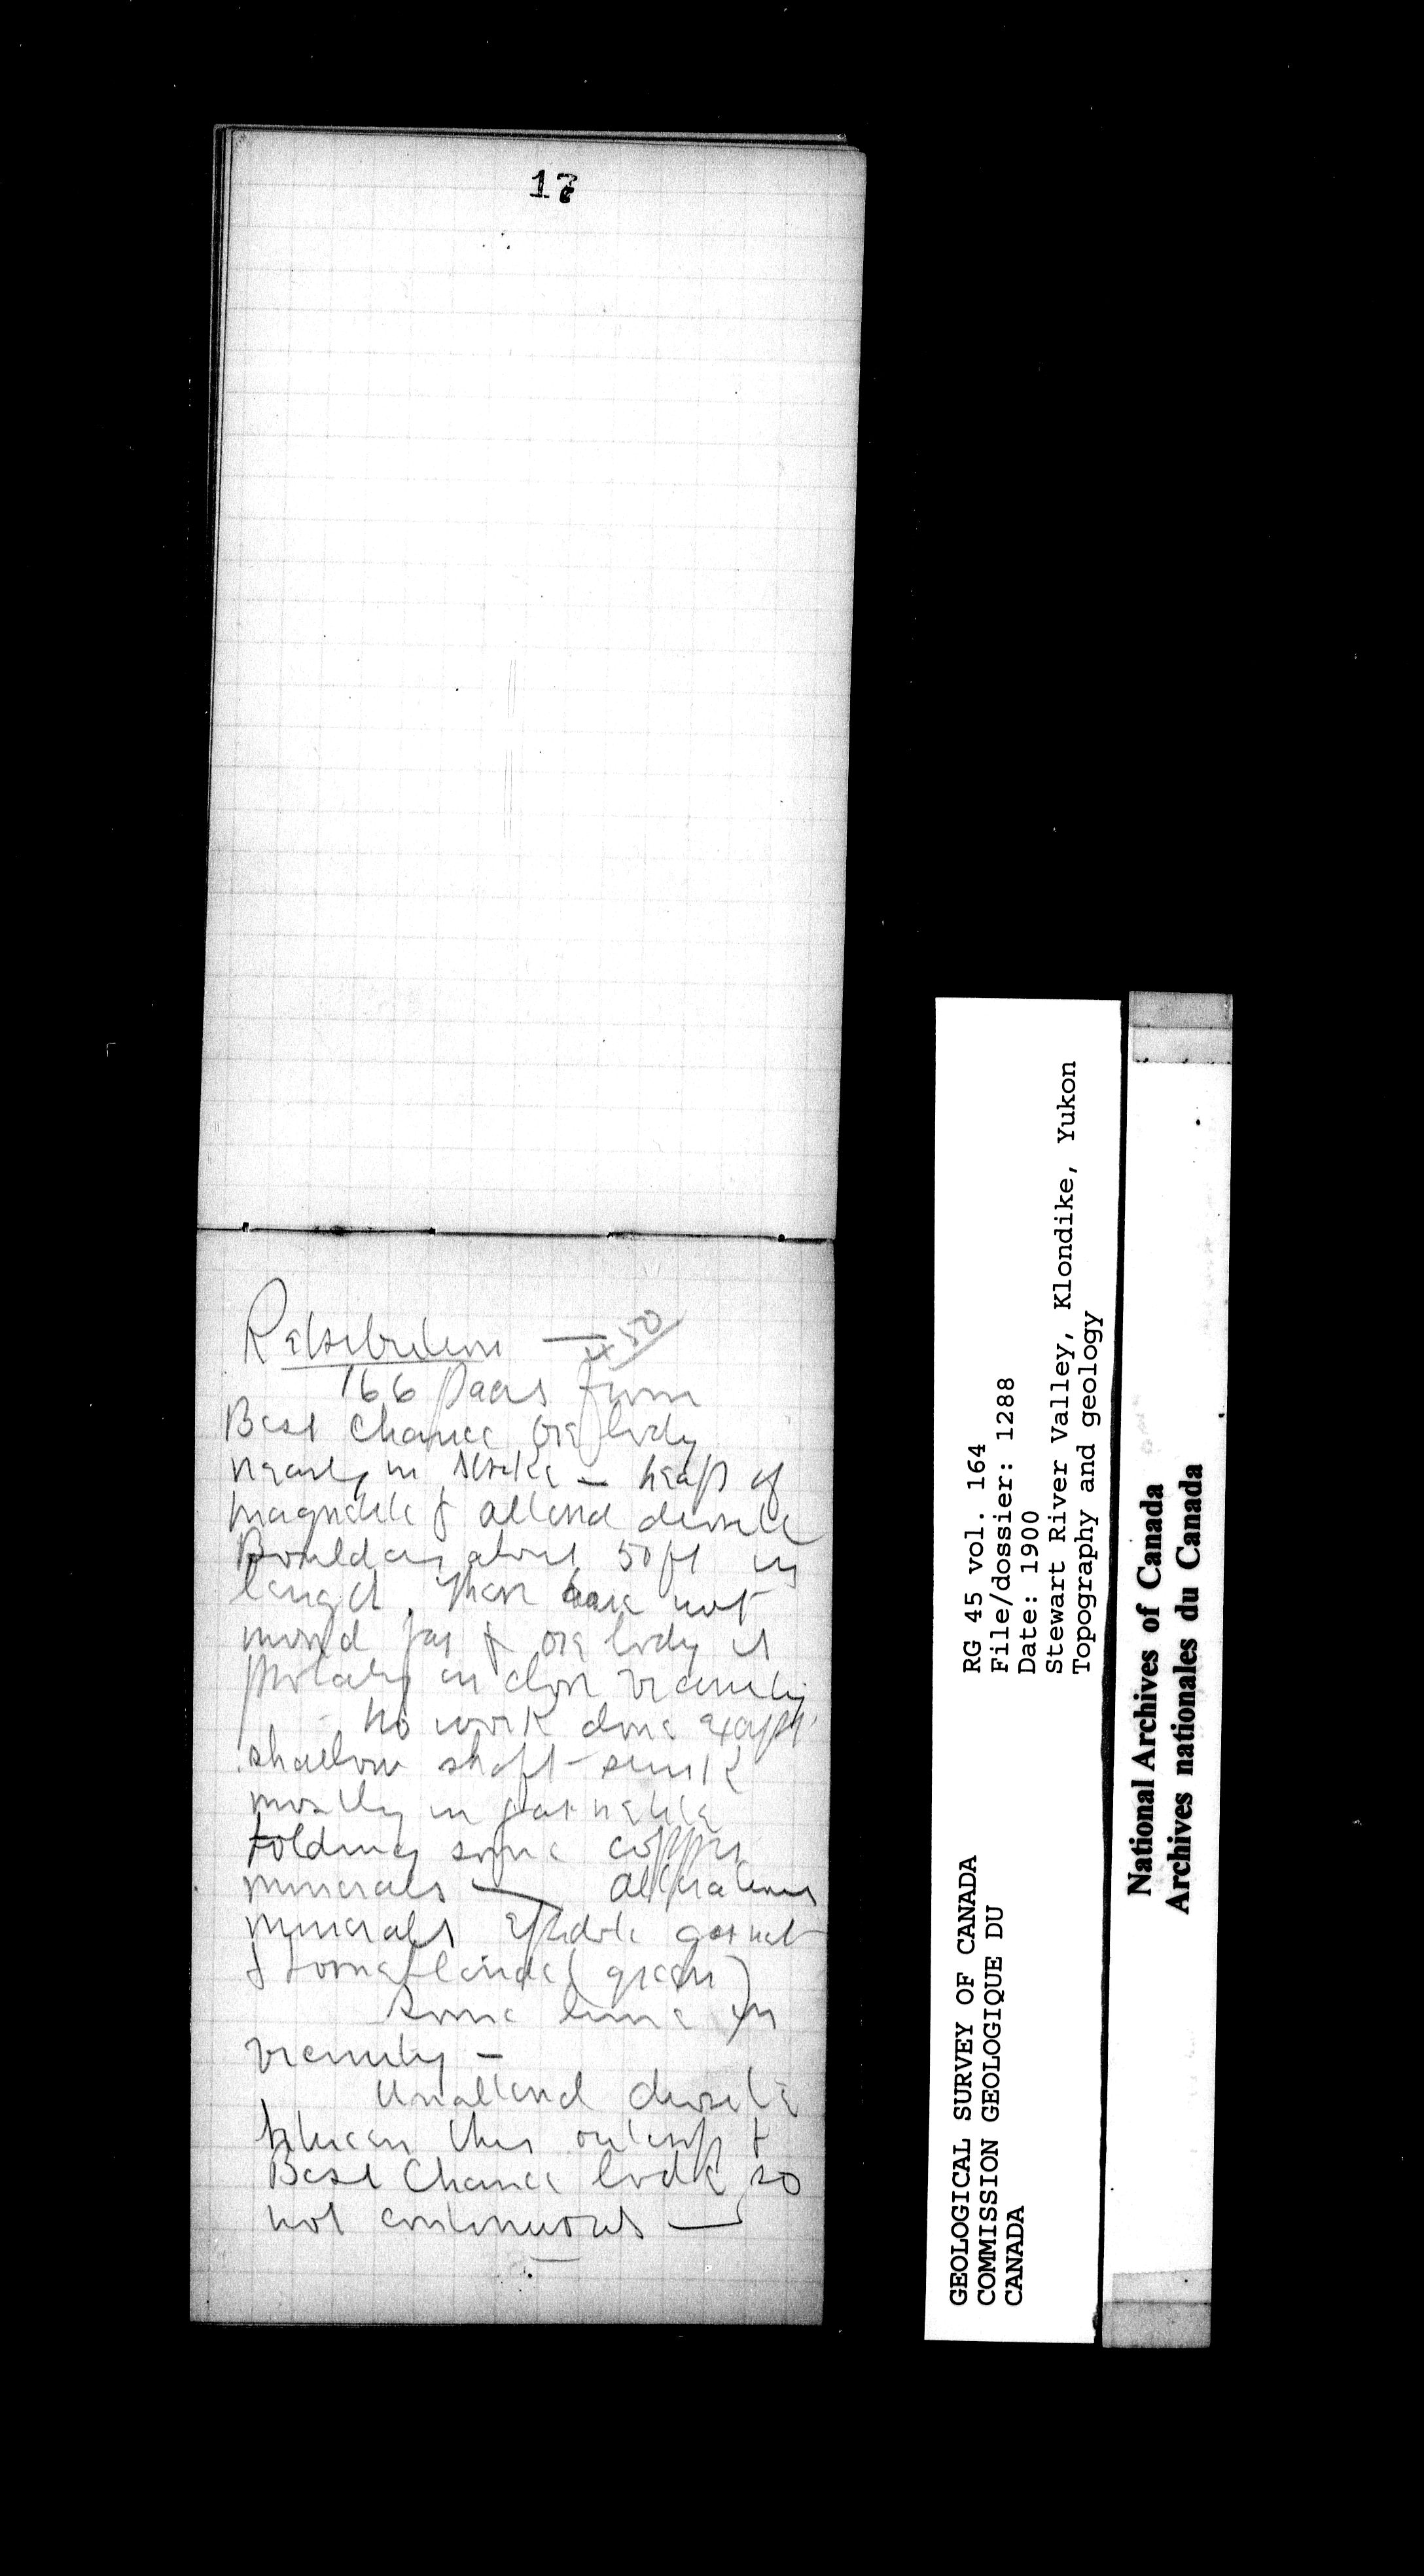 17
Retribution — 450
166 paces from
Best Chance ore body
nearly in strike — heaps of
magnetite & altered diorite
Boulders about 50 ft in
length. These have not
moved far & ore body is
probably in close vicinity
No work done except
shallow shaft sunk
mostly in garnetite
holding some copper
minerals — alterations
minerals epidote garnet
& hornblende (green)
Some lime in
vicinity —
Unaltered diorite
between this outcrop &
Best Chance lode so
not continuous —
GEOLOGICAL SURVEY OF CANADA
COMMISSION GEOLOGIQUE DU
CANADA
RG 45 vol. 164
File/dossier: 1288
Date: 1900
Stewart River Valley, Klondike, Yukon
Topography and geology
National Archives of Canada
Archives nationales du Canada